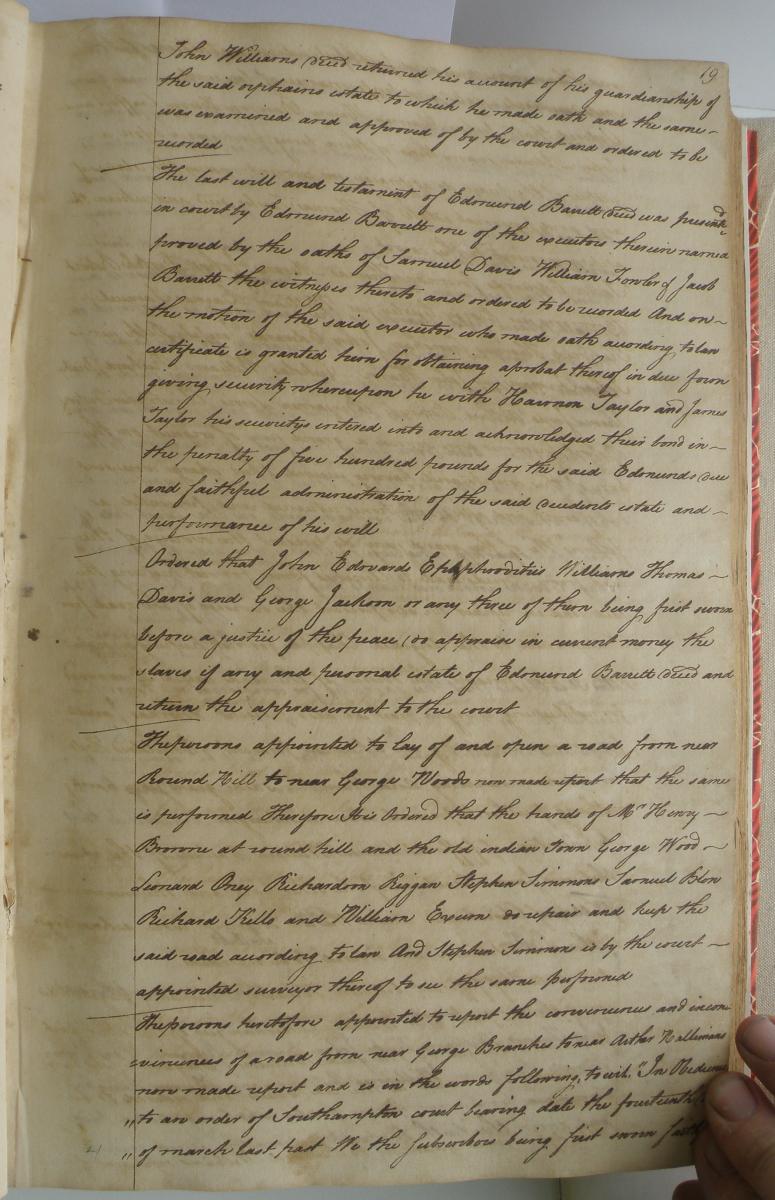 19
John Williams decd returned his account of his guardianship of
the said orphains estate to which he made oath and the same
was examined and approved of by the court and ordered to be
recorded
The last will and testament of Edmund Barrett decd was presented
in court by Edmund Barrett one of the executors therein named
proved by the oaths of Samuel Davis William Fowler & Jacob
Barrett the witnesses thereto and ordered to be recorded And on
the motion of the said executor who made oath according to law
certificate is granted him for obtaining a probat thereof in due form
giving security whereupon he with Harmon Taylor and James
Taylor his securitys entered into and acknowledged their bond in
the penalty of five hundred pounds for the said Edmunds due
and faithful administration of the said decedents estate and
performance of his will
Ordered that John Edwards Epaphroditis Williams Thomas
Davis and George Jackson or any three of them being first sworn
before a justice of the peace do appraise in current money the
slaves if any and personal estate of Edmund Barrett decd and
return the appraisement to the court
The persons appointed to lay of and open a road from near
Round Hill to near George Woods now made report that the same
is performed Therefore It is Ordered that the hands of Mr Henry
Browne at round hill and the old indian Town George Wood
Leonard Oney Richardson Riggan Stephen Simmons Samuel Blow
Richard Kello and William Exum do repair and keep the
said road according to law And Stephen Simmons is by the court
appointed surveyor thereof to see the same performed
The persons heretofore appointed to report the conveniences and incon
=veniences of a road from near George Branches to near Arthur
now made report and is in the words following, to wit, "In Obedience
" to an order of Southampton court bearing date the fourteenth
" of march last past We the subscribers being first sworn